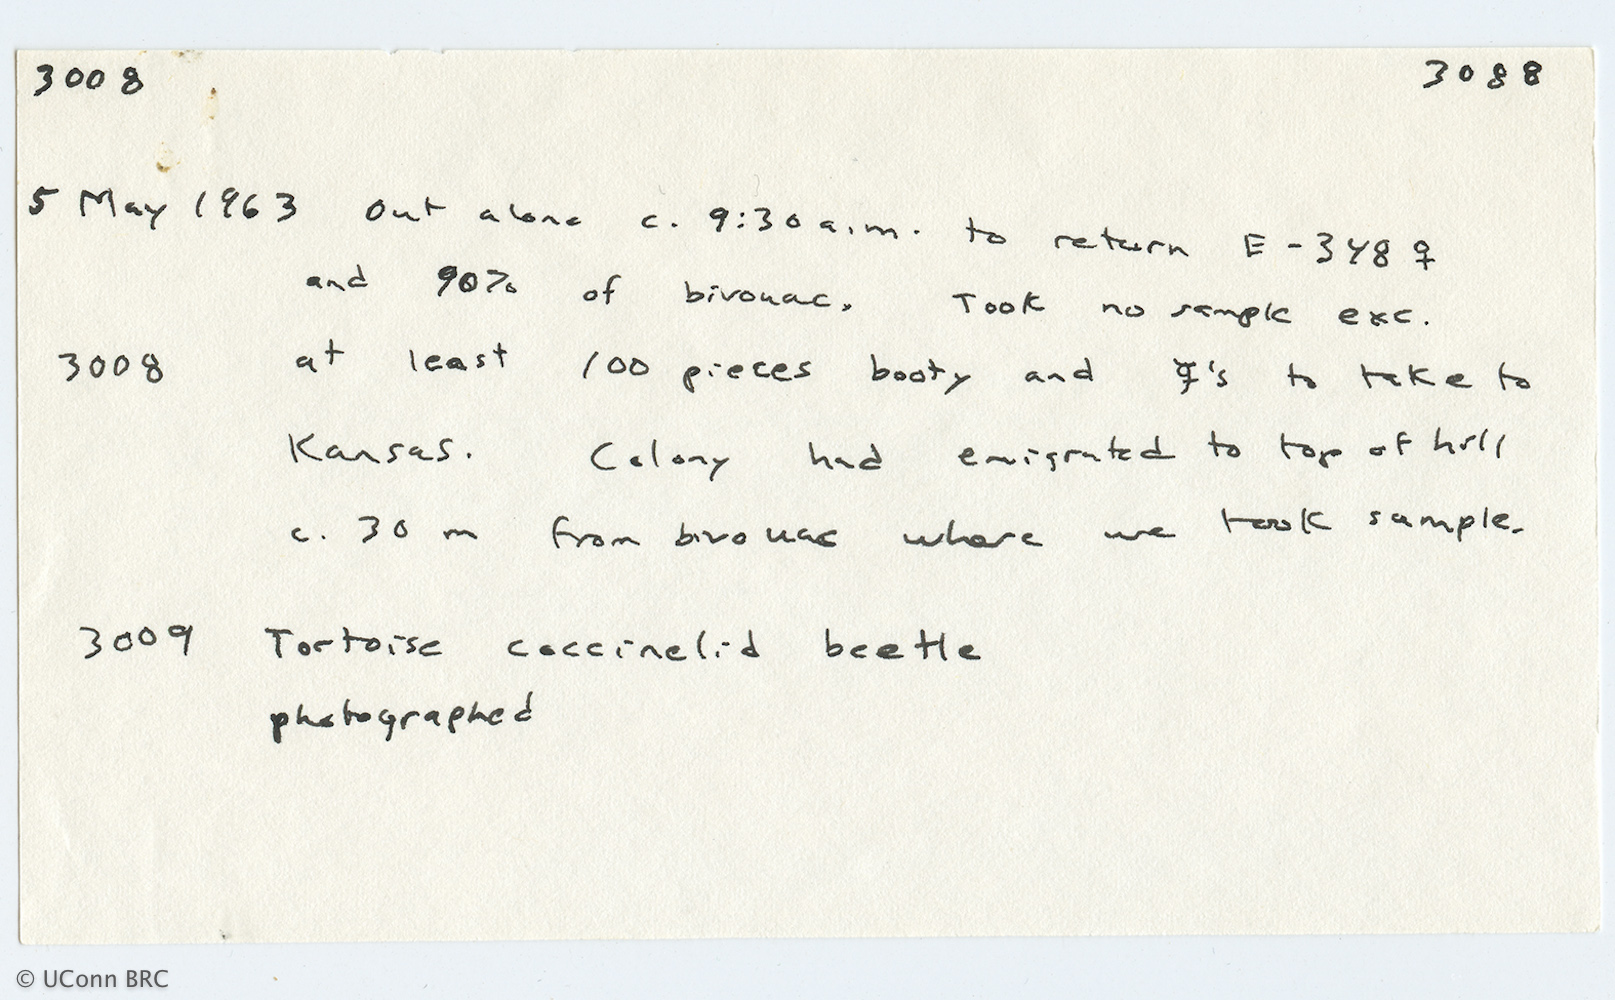 3008 3088
5 May 1963 Out alone c. 9:30 a.m. to return E-348 ♀
and 90% of bivouac. Took no sample exc.
3008 at least 100 pieces booty and ☿'s to take to
Kansas. Colony had emigrated to top of hill
c. 30 m from bivouac where we took sample.
3009 Tortoise coccinelid beetle
photographed
© UConn BRC